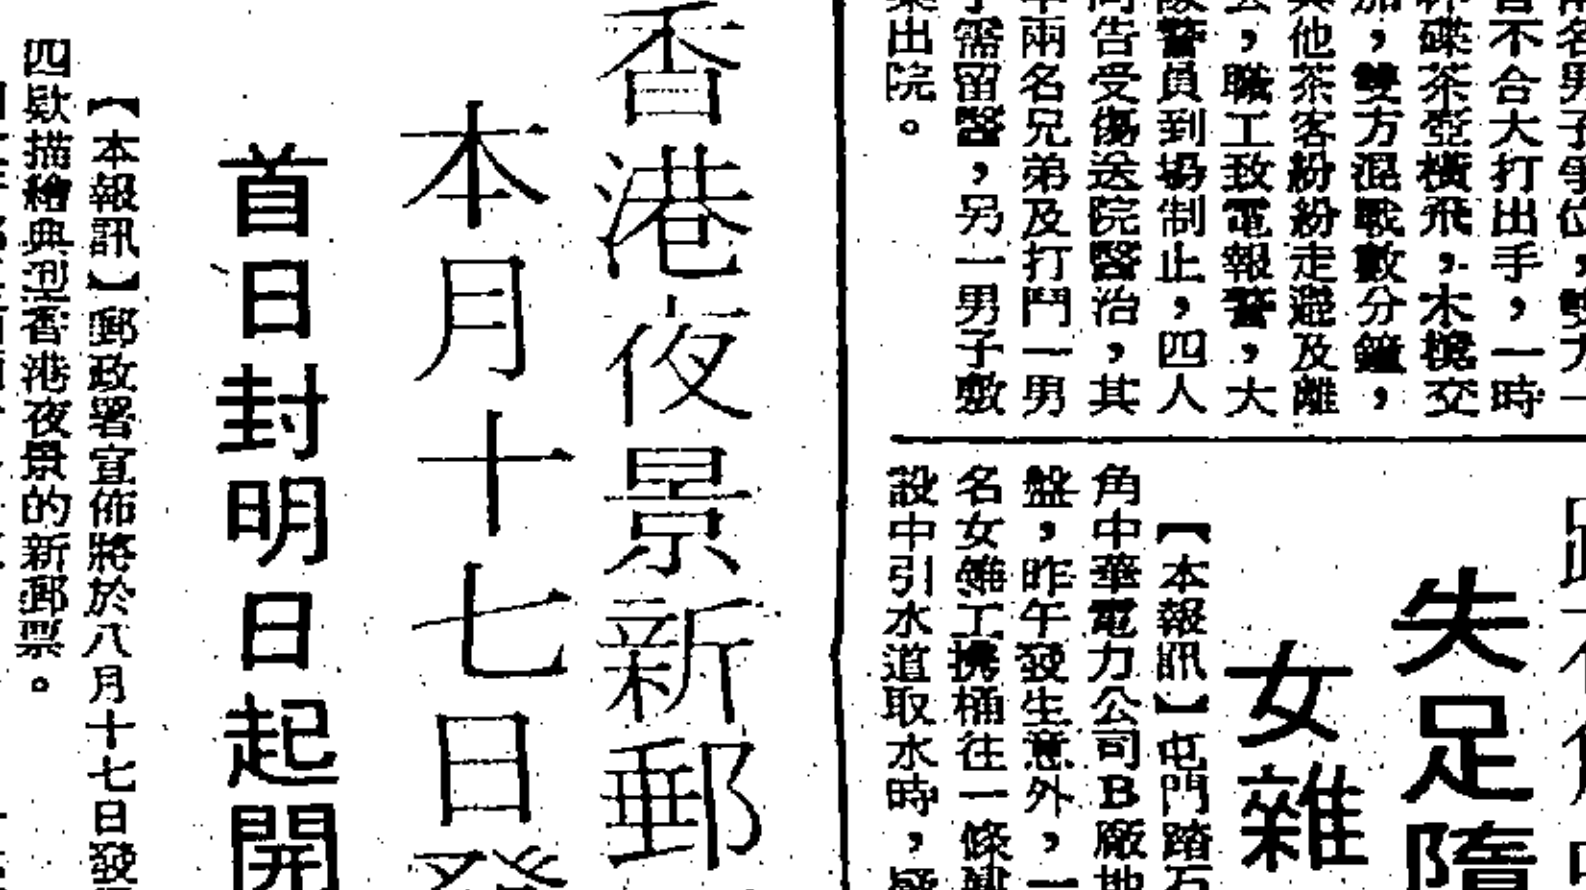 名男子爭位，雙方一
不合大打出手，一時
碟茶壺橫飛，木櫈交
加，雙方混戰數分鐘，
其他茶客紛紛走避及離
，職工致電報警，大
隊警員到場制止，四人
告受傷送院醫治，其
兩名兄弟及打鬥一男
需留醫，另一男子敷
出院。
失足墮
女雜
【本報訊】屯門踏石
角中華電力公司B廠地
盤，昨午發生意外，一
名女雜工携桶往一條
設中引水道取水時，疑
香港夜景新郵
本月十七日發
首日封明日起開
【本報訊】郵政署宣佈將於八月十七日發
四欵描繪典型香港夜景的新郵票。